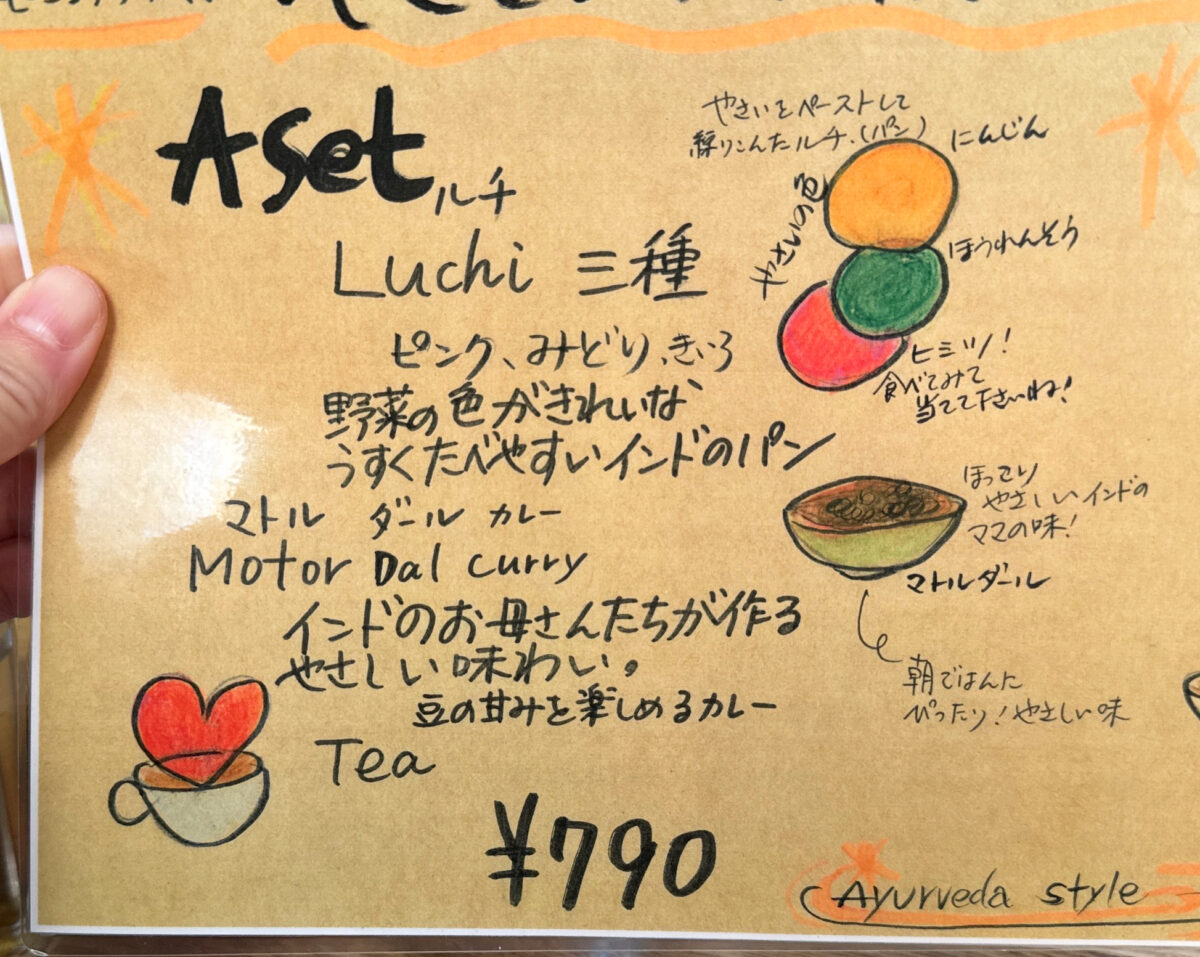 Aset
ルチ
Luchi 三種
ピンク、みどり、きいろ
野菜の色がきれいな
うすくたべやすいインドのパン
マトル ダール カレー
Motor Dal curry
インドのお母さんたちが作る
やさしい味わい。
豆の甘みを楽しめるカレー
Tea
¥790
やさいをペーストして
練りこんだルチ.(パン)
にんじん
やさいの色
ほうれんそう
ヒミツ!
食べてみて
当てて下さいね!
ほっこり
やさしいインドの
ママの味!
マトルダール
朝ごはんに
ぴったり!やさしい味
Ayurveda style